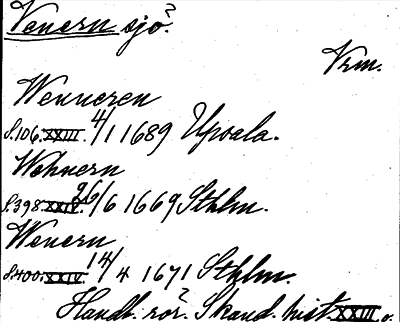 Venern sjö?
Vrm.
Wenneren
S. 106. XXIII. 4/1 1689 Upsala.
Wehnern
S. 398. XXIV. 26/6 1669 Sthlm.
Wenern
S. 400. XXIV. 14/4 1671 Sthlm.
Handl. rör? Skand. hist. XXIII o.